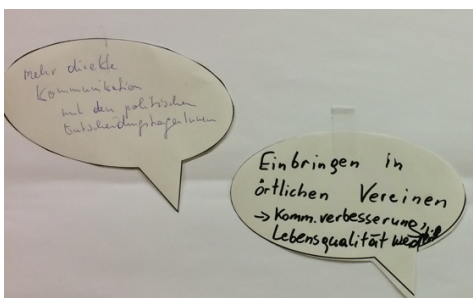 mehr direkte
Kommunikation
mit den politischen
EntscheidungsträgerInnen
Einbringen in
örtlichen Vereinen
→ Komm.verbesserung,
Lebensqualität